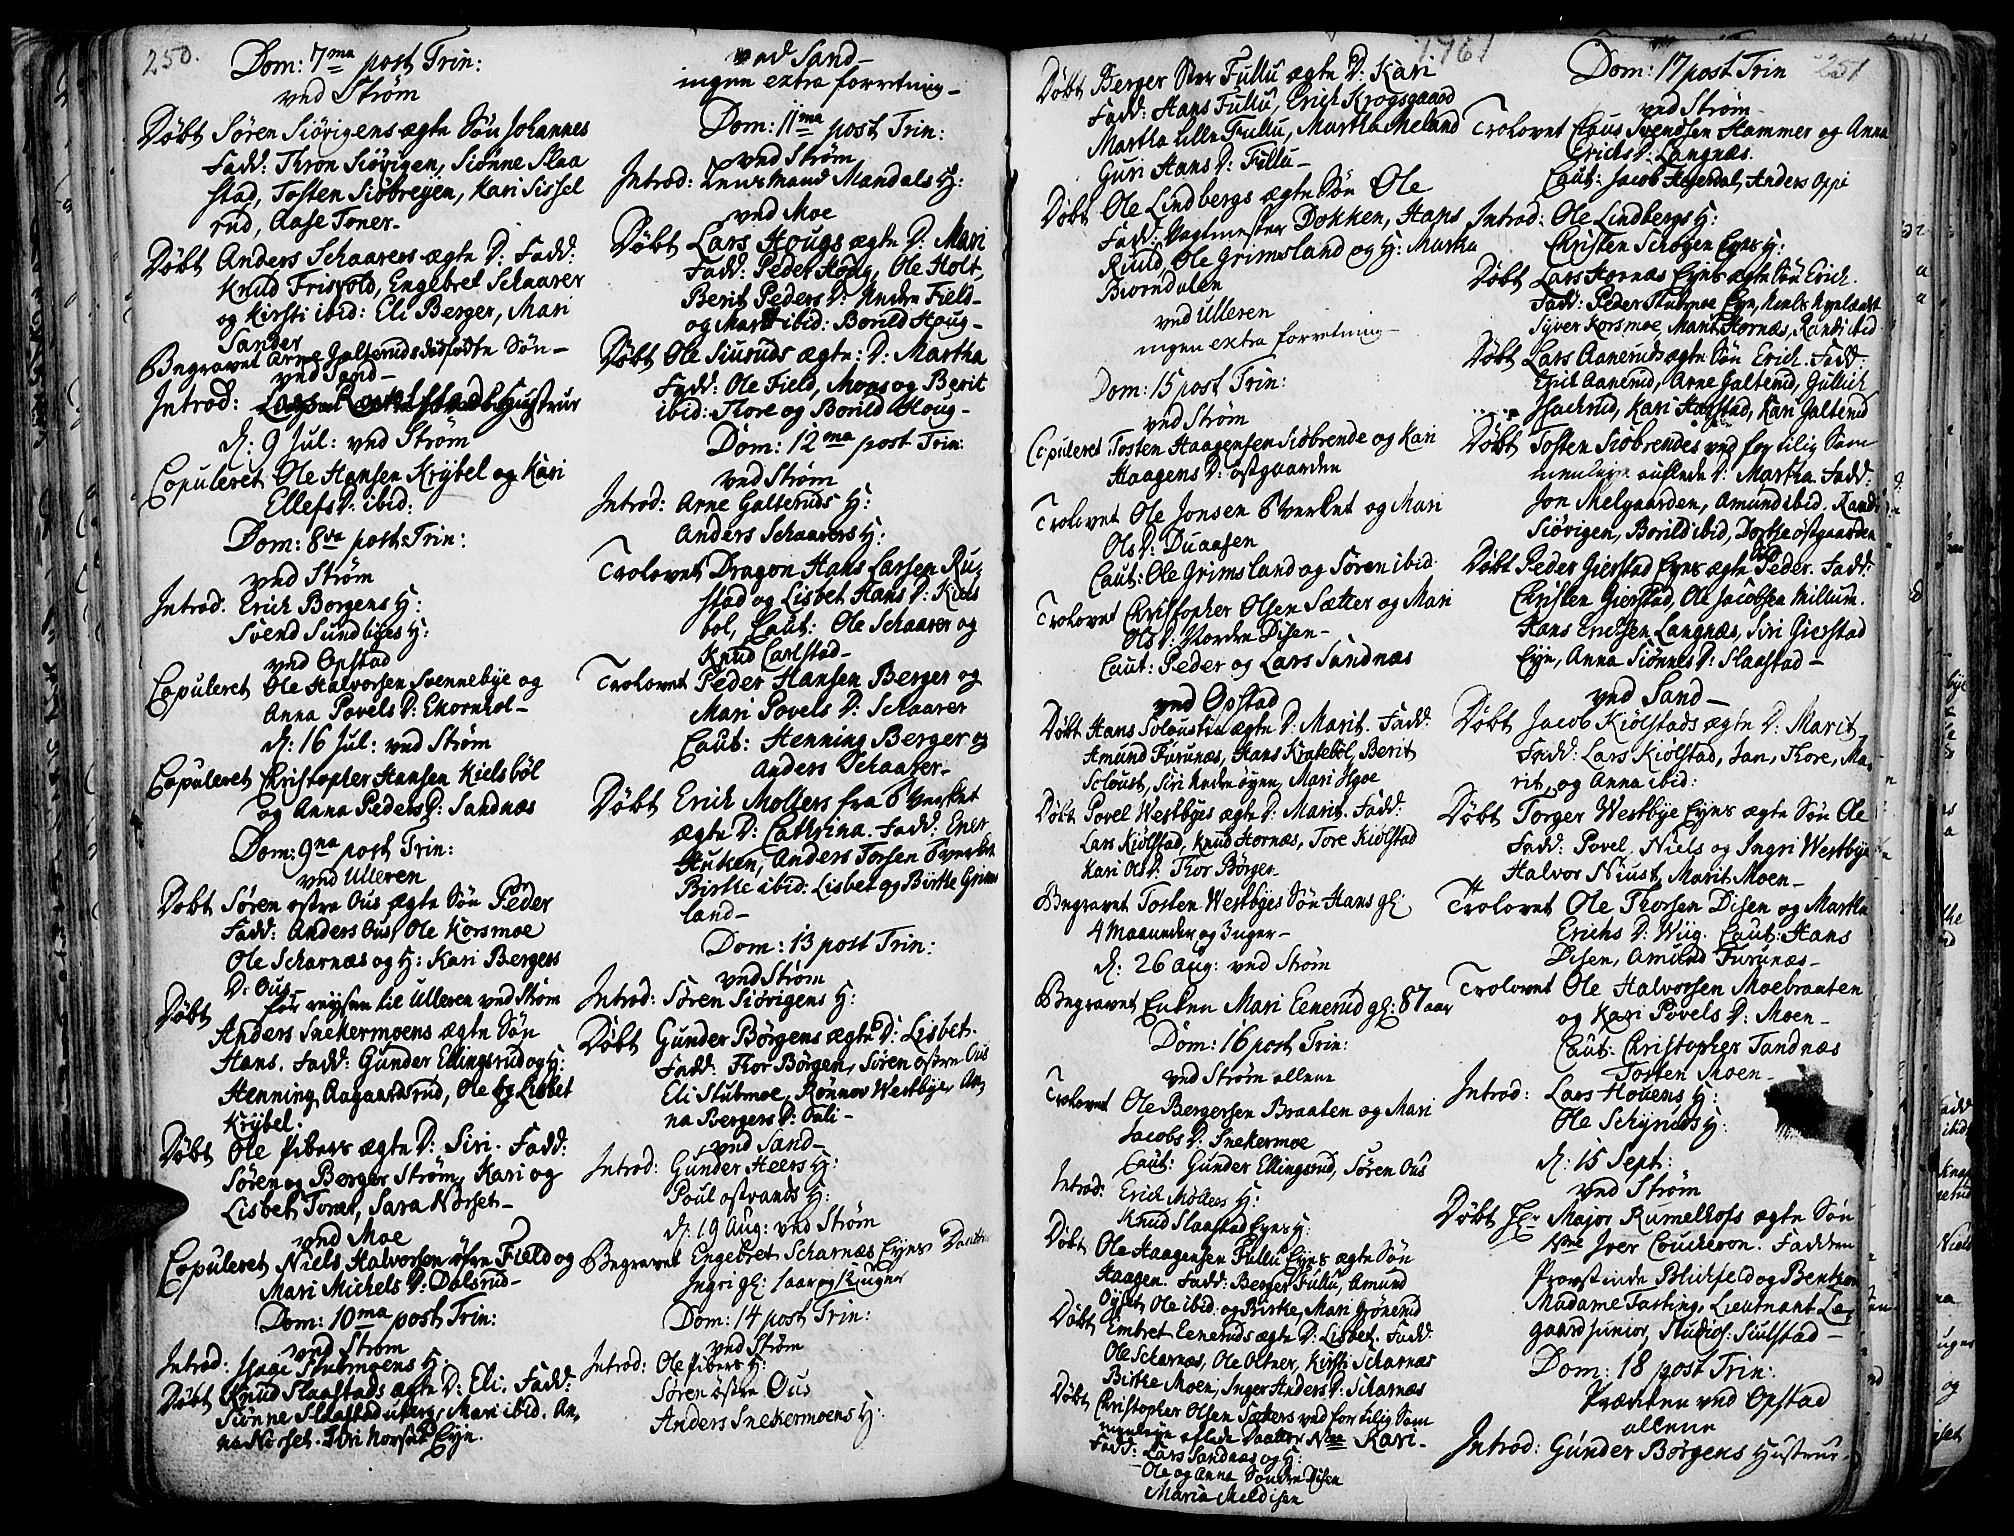 250.
Dom: 7ma post Trin:
ved Strøm
Døbt Søren Siøvigens ægte Søn Johannes
Fadd: Thron Siøvigen, Siønne Slaa
stad, Tosten Siøbreyen, Kari Sissel
rud, Aase Toner-
Døbt Anders Schaarers ægte D: Fadd:
Knud Trisvold, Engebret Schaarer
og Kirsti ibid: Eli Berger, Mari
Sander
Begravet Arne Galteruds dødfødte Søn-
ved Sand-
Introd: Hustrur
d: 9 Jul: ved Strøm
Copuleret Ole Hansen Krybel og Kari
Ellefs D: ibid:
Dom: 8va post: Trin:
ved Strøm
Introd: Erich Borgens H:
Svend Sundbyes H:
ved Opstad
Copuleret Ole Halvorsen Svennebye og
Anna Povels D: Ekornhol-
d: 16 Jul: ved Strøm
Copuleret Christopher Hansen Kielsbøl
og Anna Peders D: Sandnæs
Dom: 9na post Trin:
ved Ulleren
Døbt Søren østre Ous ægte Søn Peder
Fadd: Anders Ous, Ole Korsmoe
Ole Scharnæs og H: Kari Bergers
D: Ous-
Døbt før reysen til Ulleren ved Strøm
Anders Snekermoens ægte Søn
Hans. Fadd: Gunder Ellingsrud og H:
Henning Aagaardsrud, Ole og Lisbet
Krybel.
Døbt Ole Pibers ægte D: Siri. Fadd:
Søren og Berger Strøm, Kari og
Lisbet Toner, Sara Norset-
ved Moe
Copuleret Niels Halvorsen øfre Field og
Mari Michels D: Dalsrud-
Dom: 10ma post Trin:
ved Strøm
Introd: Isaac Stubmoens H:
Døbt Knud Slaastads ægte D: Eli. Fadd:
Siønne Slaastad Mari ibid. An,
na Norset. Siri Norset Eyn.
ved Sand-
ingen extra forretning-
Dom: 11ma post Trin:
ved Strøm
Introd: Mandals H:
ved Moe
Døbt Lars Hougs ægte D: Mari
Fadd: Peder Houg, Ole Holt,
Berit Peders D: Nedre Field-
og Marit ibid: Borild Houg-
Døbt Ole Siuruds ægte: D: Martha
Fadd: Ole Field, Mons og Berit
ibid: Thore og Borild Houg-
Dom: 12ma post Trin:
ved Strøm
Introd: Arne Galteruds H:
Anders Schaarers H:
Trolovet Dragon Hans Larsen Ru,
stad og Lisbet Hans D: Kiels
bol, Caut: Ole Schaarer og
Knud Carlstad-
Trolovet Peder Hansen Berger og
Mari Povels D: Schaarer
Caut: Henning Berger og
Anders Schaarer-
Døbt Erich Mollers fra Overket
ægte D: Cathrina. Fadd: Ener
Huken, Anders Torsen Overket
Birthe ibid: Lisbet og Birthe Grims
land-
Dom: 13 post Trin:
ved Strøm
Introd: Søren Siøvigens H:
Døbt Gunder Børgens ægte D: Lisbet.
Fadd: Thor Børgen, Søren østre Ous
Eli Stubmoe, Rønnov Westbye, An,
na Bergers D: Fuli-
ved Sand-
Introd: Gunder Heers H:
Poul Ostvands H:
d: 19 Aug: ved Strøm
Begravet Engebret Scharnæs Eyns Daatter
Ingri gl: 1 aar og Uger
Dom: 14 post Trin:
ved Strøm
Introd: Ole Pibers H:
Søren østre Ous
Anders Snekermoens H:
1761
Døbt Berger Stor Fullu ægte D: Kari
Fadd: Hans Fullu, Erich Krogsgaard
Martha Lille Fullu, Martha Meland
Guri Hans D: Fullu-
Døbt Ole Lindbergs ægte Søn Ole
Fadd: Vagtmester Dokken, Hans
Ruud, Ole Grimsland og H: Martha
Brondalen
ved Ulleren
ingen extra forretning
Dom: 15 post Trin:
ved Strøm
Copuleret Tosten Haagensen Siøbrende og Kari
Haagens D: østgaarden
Trolovet Ole Jonsen Overket og Mari
Ols D: Duaasen
Caut: Ole Grimsland og Søren ibid.
Trolovet Christopher Olsen Sætter og Mari
Ols D: Nordre Disen-
Caut: Peder og Lars Sandnæs
ved Opstad
Døbt Hans Soloustin ægte D: Marit. Fadd:
Amund Furunæs, Hans Kratebøl, Berit
Soloust, Siri Nedre øyen, Mari Hgoe
Døbt Povel Westbyes ægte D: Marit. Fadd:
Lars Kiølstad, Knud Hornæs, Tore Kiølstad
Kari Ols D: Thor Børger-
Begravet Tosten Westbyes Søn Hans gl:
4 Maaneder og 3 uger-
d: 26 Aug: ved Strøm
Begravet Enken Mari Eenerud gl: 87 aar
Dom: 16 post Trin:
ved Strøm allene
Trolovet Ole Bergersen Braaten og Mari
Jacobs D: Snekermoe
Caut: Gunder Ellingsrud, Søren Ous
Introd: Erich Møllers H:
Knud Slaastad Eyns H:
Døbt Ole Haagensen Fullu Eyns ægte Søn
Haagen. Fadd: Berger Fullu, Amund
Oyset, Ole ibid. og Birthe, Mari Grønerud
Døbt Embret Eeneruds ægte D: Lisbet. Fadd:
Ole Scharnæs, Ole Oltner, Kirsti Scharnæs
Birthe Moen, Inger Anders D: Scharnæs
Døbt Christopher Olsen Sæters ved for tilig Sam
menleje aflede Daatter Nne Kari-
Fadd: Lars Sandnæs og H:
Ole og Anna Søndre Disen
Maria Meldisen
251
Dom: 17 post Trin
ved Strøm
Trolovet Claus Svendsen Hammer og Anna
Erichs D: Langnæs.
Caut: Jacob Haserdal, Anders Oppi
Introd: Ole Lindbergs H:
Christen Schøyen Eyns H:
Døbt Lars Hornæs Eyns ægte Søn Erich.
Fadd: Peder Stubmoe Eyn,
Syver Korsmoe, Marit Hornæs, Randi ibid
Døbt Lars Aaneruds ægte Søn Erich. Fadd:
Erich Aanerud, Arne Galterud, Gullich
Isachrud, Kari Harstad, Kari Galterud
Døbt Tosten Siøbrendes ved for tilig Sam
menleje auflede D: Martha. Fadd:
Jon Melgaarden, Amund ibid. Randi
Siøvigen, Borild ibid, Dorthe østgaarden
Døbt Peder Gierstad Eyns ægte Peder. Fadd:
Christen Gierstad, Ole Jacobsen Millum.
Hans Erichsen Langnæs, Siri Gierstad
Eyn, Anna Siønnes D: Slaastad-
ved Sand-
Døbt Jacob Kiølstads ægte D: Marit
Fadd: Lars Kiølstad, Jan, Thore, Ma,
rit, og Anna ibid:
Døbt Torger Westbye Eyns ægte Søn Ole
Fadd: Povel. Niels og Ingri Westbye
Halvor Niust, Marit Moen-
Trolovet Ole Thorsen Disen og Martha
Erichs D: Wiig. Caut: Hans
Disen, Amund Furunæs-
Trolovet Ole Halvorsen Moebraaten
og Kari Povels D: Moen-
Caut: Christopher Sandnæs
Tosten Moen-
Introd: Lars Houens H:
Ole Schyruds H:
d: 15 Sept:
ved Strøm
Døbt Hr Major Rumelhofs ægte Søn
Nne Iver Coucheron. Fadden
Provstinde Blichfeld og Bentzon
Madame Tasting, Lieutnant Le,
gaard junior, Studios: Siulstad-
Dom: 18 post Trin:
Præken ved Opstad
allene
Introd: Gunder Børgens Hustrur-